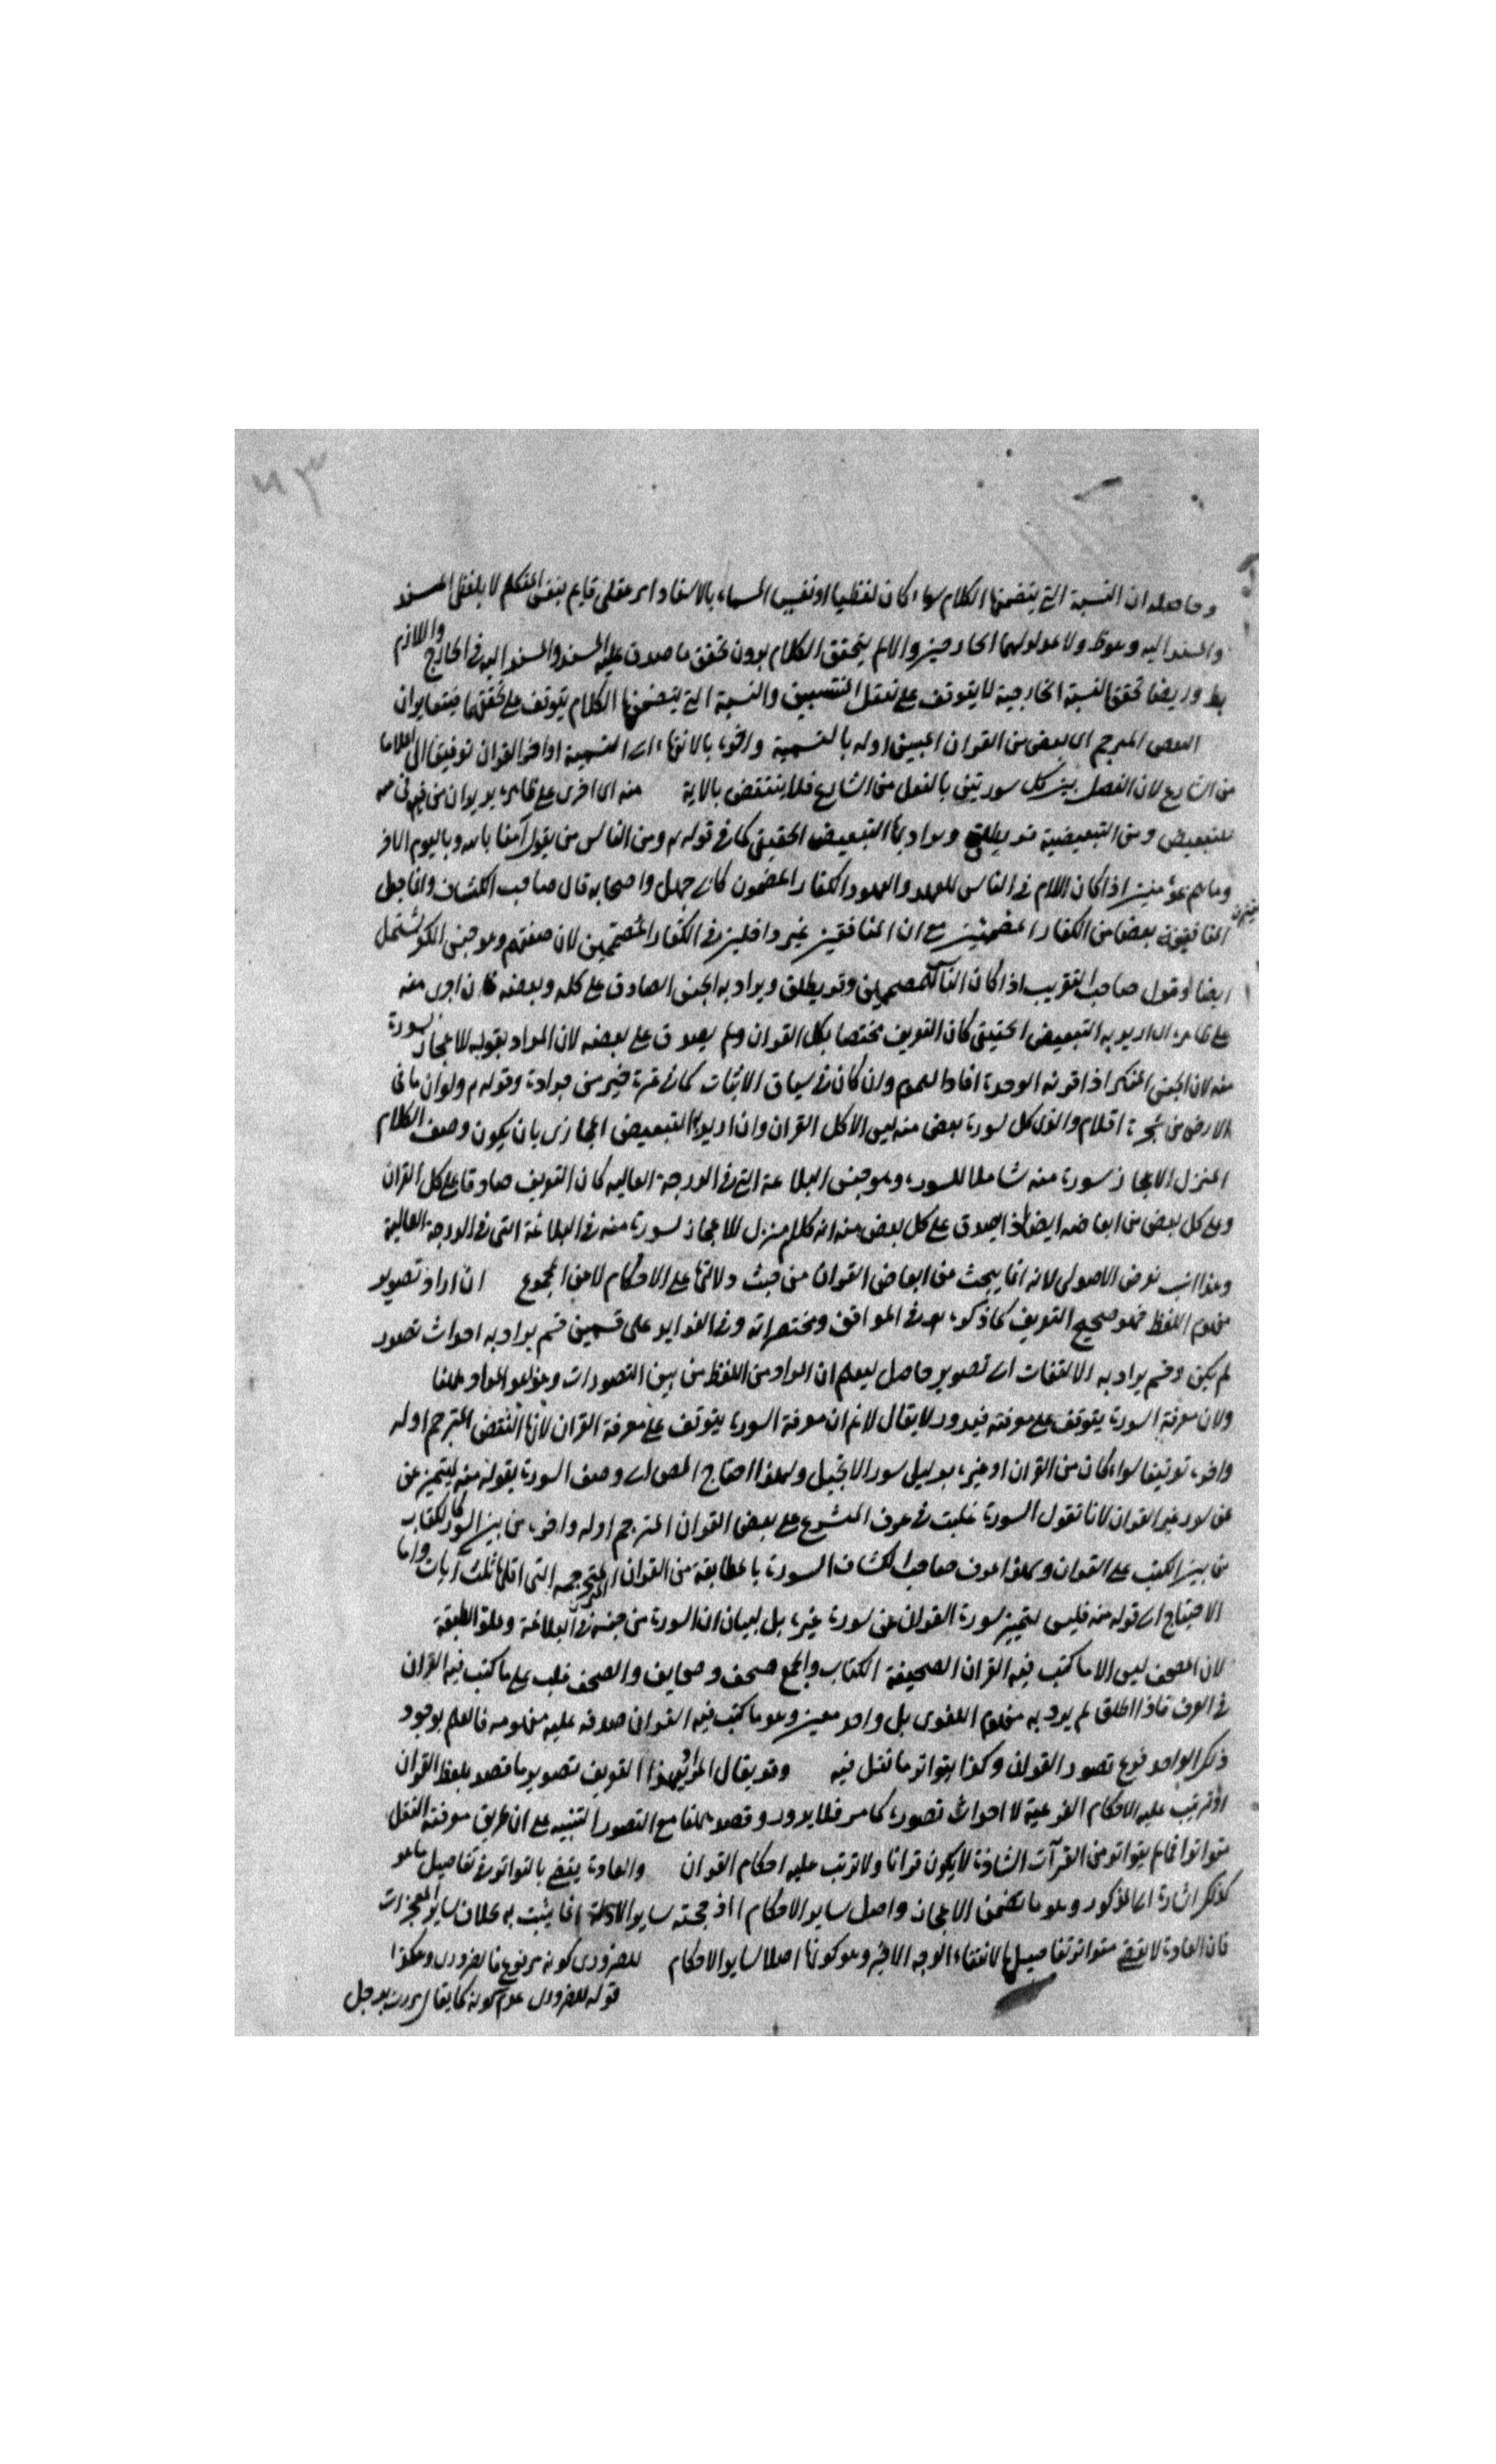 وحاصله ان النسبة التى يتضمنها الكلام سواء كان لفظيا او نفسيا المسماة بالاسناد امر عقلى قايم بنفس المتكلم لا بلفظى المسند
والمسند اليه وهوظ ولا بمدلوليهما الخارجيين والا لم يتحقق الكلام بدون تحقق ما صدق عليه المسند والمسند اليه فى الخارج واللازم
بط وايضا تحقق النسبة الخارجية لا يتوقف على تعقل المنتسبين والنسبة التى يتضمنها الكلام يتوقف على تحققها فيتغايران
البعض المترجم اى بعض من القران المبين اوله بالتسمية واخره بالانتهاء الى التسمية او اخر القران توفيقا اى اعلاما
من الشارع لان الفصل بين كل سورتين بالنقل من الشارع فلا ينتقض بالاية منه ان اجرى على ظاهره يريد ان من فى منه
للتبعيض ومن التبعيضية قد يطلق ويراد بها التبعيض الحقيقى كما فى قوله تع ومن الناس من يقول آمنا بالله وباليوم الاخر
وما هم بمؤمنين اذا كان اللام فى الناس للعهد والمعهود الكفار المصممون كابى جهل واصحابه قال صاحب الكشاف وانما جعل
المنافقين بعضا من الكفار المصممين مع ان المنافقين غير داخلين فى الكفار المصممين لان صفتهم وهو جنس الكفر يشتمل
ايضا وقول صاحب التقريب اذا كان الناس المصممين وقد يطلق ويراد به الجنس الصادق على كله وبعضه فان اجرى منه
على ظاهره اى اريد به التبعيض الحقيقى كان التعريف مختصا بكل القران ولم يصدق على بعضه لان المراد بقوله للاعجاز بسورة
منه لان الجنس المنكر اذا قرنه الوحدة افاد العموم وان كان فى سياق الاثبات كما فى تمرة خير من جرادة وقوله تع ولو ان ما فى
الارض من شجرة اقلام والذى كل سورة بعض منه ليس الا كل القران وان اريد به التبعيض المجازى بان يكون وصف الكلام
المنزل الاعجاز بسورة منه شاملا للسورة وهو جنس البلاغة التى فى الدرجة العالية كان التعريف صادقا على كل القران
وعلى كل بعض من ابعاضه ايضا اذ يصدق على كل بعض منه انه كلام منزل للاعجاز بسورة منه فى البلاغة التى فى الدرجة العالية
وهذا انسب بغرض الاصولى لانه انما يبحث من ابعاض القران من حيث دلالتها على الاحكام لا من المجموع ان اراد تصوير
مفهوم اللفظ فهو صحيح التعريف كما ذكره بعد فى المواقف ومختصراته وفى الفوايد على قسمين قسم يراد به احداث تصور
لم يكن وقسم يراد به الالتفات الى تصوير حاصل ليعلم ان المراد من اللفظ من بين التصورات وهذا هو المراد ههنا
ولان معرفة السورة يتوقف على معرفته فيدور لا يقال لا نم ان معرفة السورة يتوقف على معرفة القران لانها البعض المترجم اوله
واخره توقيفا سواء كان من القران او غيره بدليل سور الانجيل ولهذا احتاج المص الى وصف السورة بقوله منه ليتميز عن
عن سور غير القران لانا نقول السورة غلبت فى عرف المتشرع على بعض القران المترجم اوله واخره من بين السور كالكتاب
من بين الكتب على القران وكهذا عرف صاحب الكشاف السورة بالطايفة من القران المترجمة التى اقلها ثلث آيات واما
الاحتياج الى قوله منه فليس لتمييز سورة القران عن سورة غيره بل لبيان ان السورة من جنسه فى البلاغة وعلو الطبقة
لان المصحف ليس الا ما كتب فيه القران الصحيفة الكتاب والجمع صحف وصحايف والمصحف غلب على ما كتب فيه القران
فى العرف فاذا اطلق لم يرد به مفهوم اللغوى بل واحد معين وهو ما كتب فيه القران صدقه عليه مفهومه فالعلم بوجود
ذلك الواحد فرع تصور القران وكذا يتواتر ما نقل فيه وقد يقال المراد بهذا التعريف تصوير ما قصد بلفظ القران
اذ ترتب عليه الاحكام الفرعية لا احداث تصوره كما مر فلا يدور وقصد ههنا مع التصور التنبيه على ان طريق معرفته النقل
متواترا فما لم يتواتر من القرآت الشاذة لا يكون قرانا ولا ترتب عليه احكام القران والعادة يقضى بالتواتر فى تفاصيل ما هو
كذلك اشارة الى المذكور وهو ما تضمن الاعجاز واصل ساير الاحكام اذ حجته ساير الادلة انما يثبت به بخلاف ساير المعجزات
فان العادة لا تقضى بتواتر تفاصيلها لانتفاء الوجه الاخير وهو كونها اصلا لساير الاحكام للضرورى كونه مرفوع ما بضرورى وهكذا
قوله للضرورى عدم كونه كما يقال مررت برجل